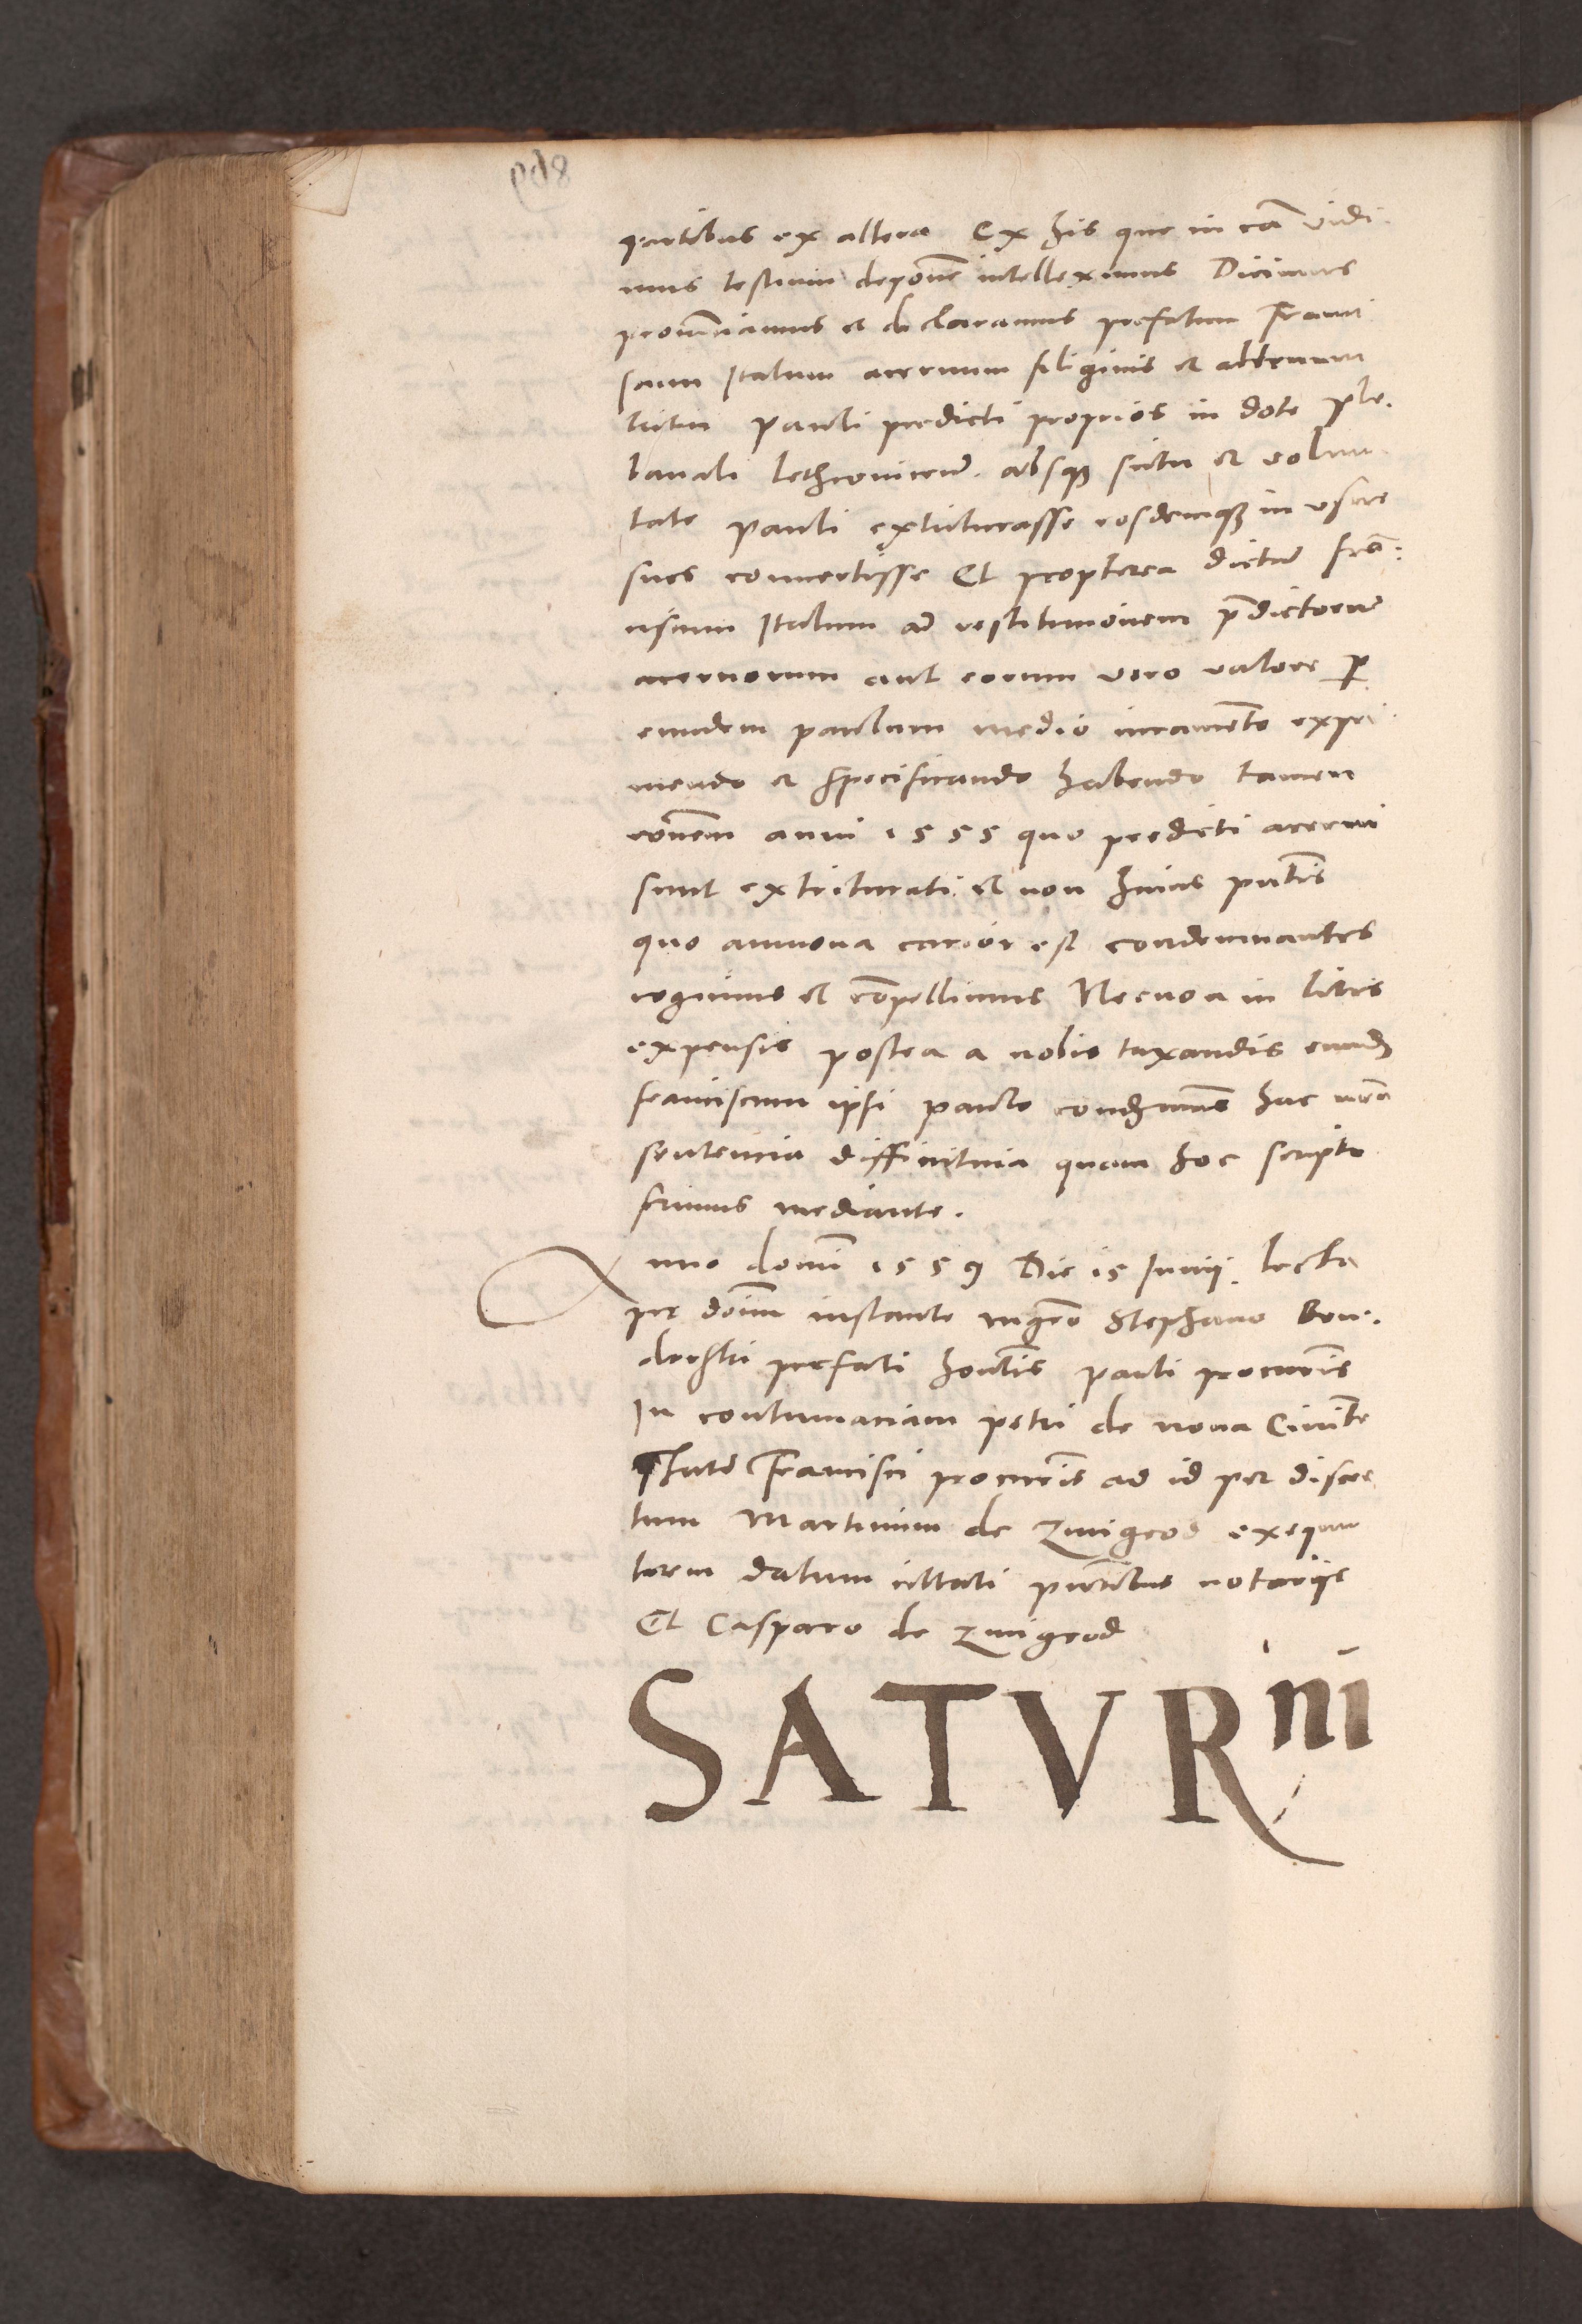 partibus ex altera Ex his que in cã vidi
mus testium deponẽ intelleximus Dicimus
pronũciamus et declaramus prefatum Franci
scum Italum acervum siliginis et alterum
tritici Pauli predicti proprios in dote ple.
banali absqȝ scitu et volun
tate Pauli extriturasse eosdemqȝ in usus
suos convertisse Et propterea dictũ Frã:
ciscum Italum ad restitucionem p̃dictorum
acervorum aut eorum vero valore p
eundem Paulum medio iuramẽto expri
mendo et specificando habendo tamen
rõnem anni 1555 quo predicti acervi
sunt extriturati et non huius pñtis
quo annona carior est condemnantes
cogimus et cõpellimus Necnon in litis
expensis postea a nobis taxandis eundȝ
Franciscum ipsi Paulo condemnamus hac nr̃a
sentencia diffinitiva quam hoc scripto
ferimus mediante.
Anno domĩ 1559 Die 15 Junij lecta
per doĩm instante mgr̃o Stephano Ben.
prefati hon̄tis Pauli procur̃is
In contumaciam Petri de nova Civit̃e
Francisci procur̃is ad id per discre
tum Martinum de Zmigrod exequu
torem datum citati pñtibus notariis
Et Casparo de Zmigrod
SATVRni